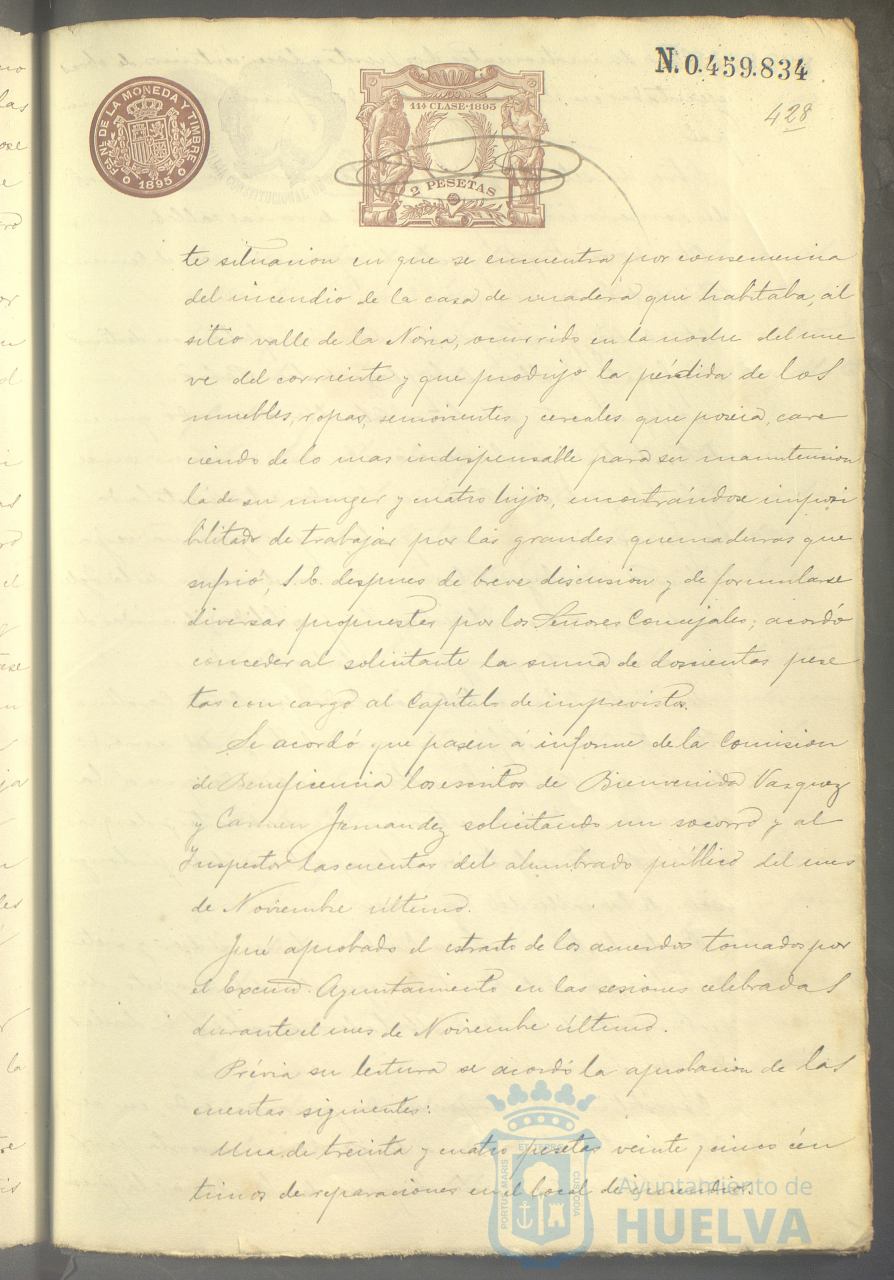 N. 0.459.834
428
FCA. NL. DE LA MONEDA Y TIMBRE
1895
11ª CLASE·1895
2 PESETAS
te situacion en que se encuentra por consecuencia
del incendio de la casa de madera que habitaba, al
sitio valle de la Noria, ocurrido en la noche del nue
ve del corriente y que produjo la pérdida de los
muebles, ropas, semovientes y cereales que poseia, care
ciendo de lo mas indispensable para su manutension
la de su muger y cuatro hijos, encontrándose imposi
bilitado de trabajar por las grandes quemaduras que
sufrió, S. E. despues de breve discusion y de formularse
diversas propuestas por los Señores Concejales; acordó
conceder al solicitante la suma de doscientas pese
tas con cargo al Capítulo de imprevistos.
Se acordó que pasen á informe de la Comision
de Beneficencia los escritos de Bienvenida Vazquez
y Carmen Fernandez solicitando un socorro y al
Inspector las cuentas del alumbrado público del mes
de Noviembre último.
Fué aprobado el estracto de los acuerdos tomados por
el Excmo. Ayuntamiento en las sesiones celebradas
durante el mes de Noviembre último.
Prévia su lectura se acordó la aprobacion de las
cuentas siguientes:
Una de treinta y cuatro pesetas veinte y cinco cén
timos de reparaciones en el local de incendios.
PORTUS MARIS ET TERRE CUSTODIA
Ayuntamiento de
HUELVA